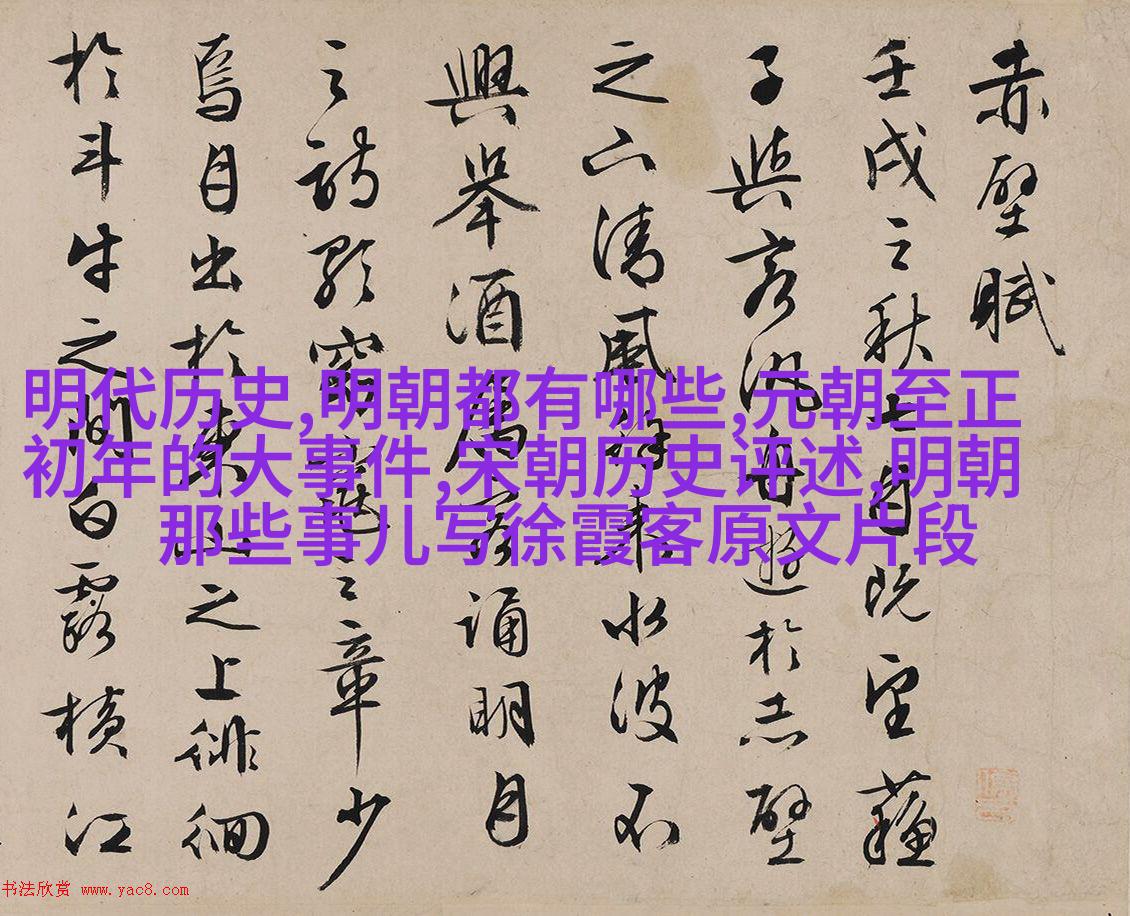 赤壁賦
壬戌之秋七月既望蘇
子與客汎舟遊於赤壁
之下清風徐來水波不
興舉酒屬客誦明月
之詩歌窈窕之章少
焉月出於東山之上徘徊
於斗牛之間白露橫江
明代历史,明朝都有哪些,元朝至正
初年的大事件,宋朝历史评述,明朝
那些事儿写徐霞客原文片段
书法欣赏 www.yac8.com